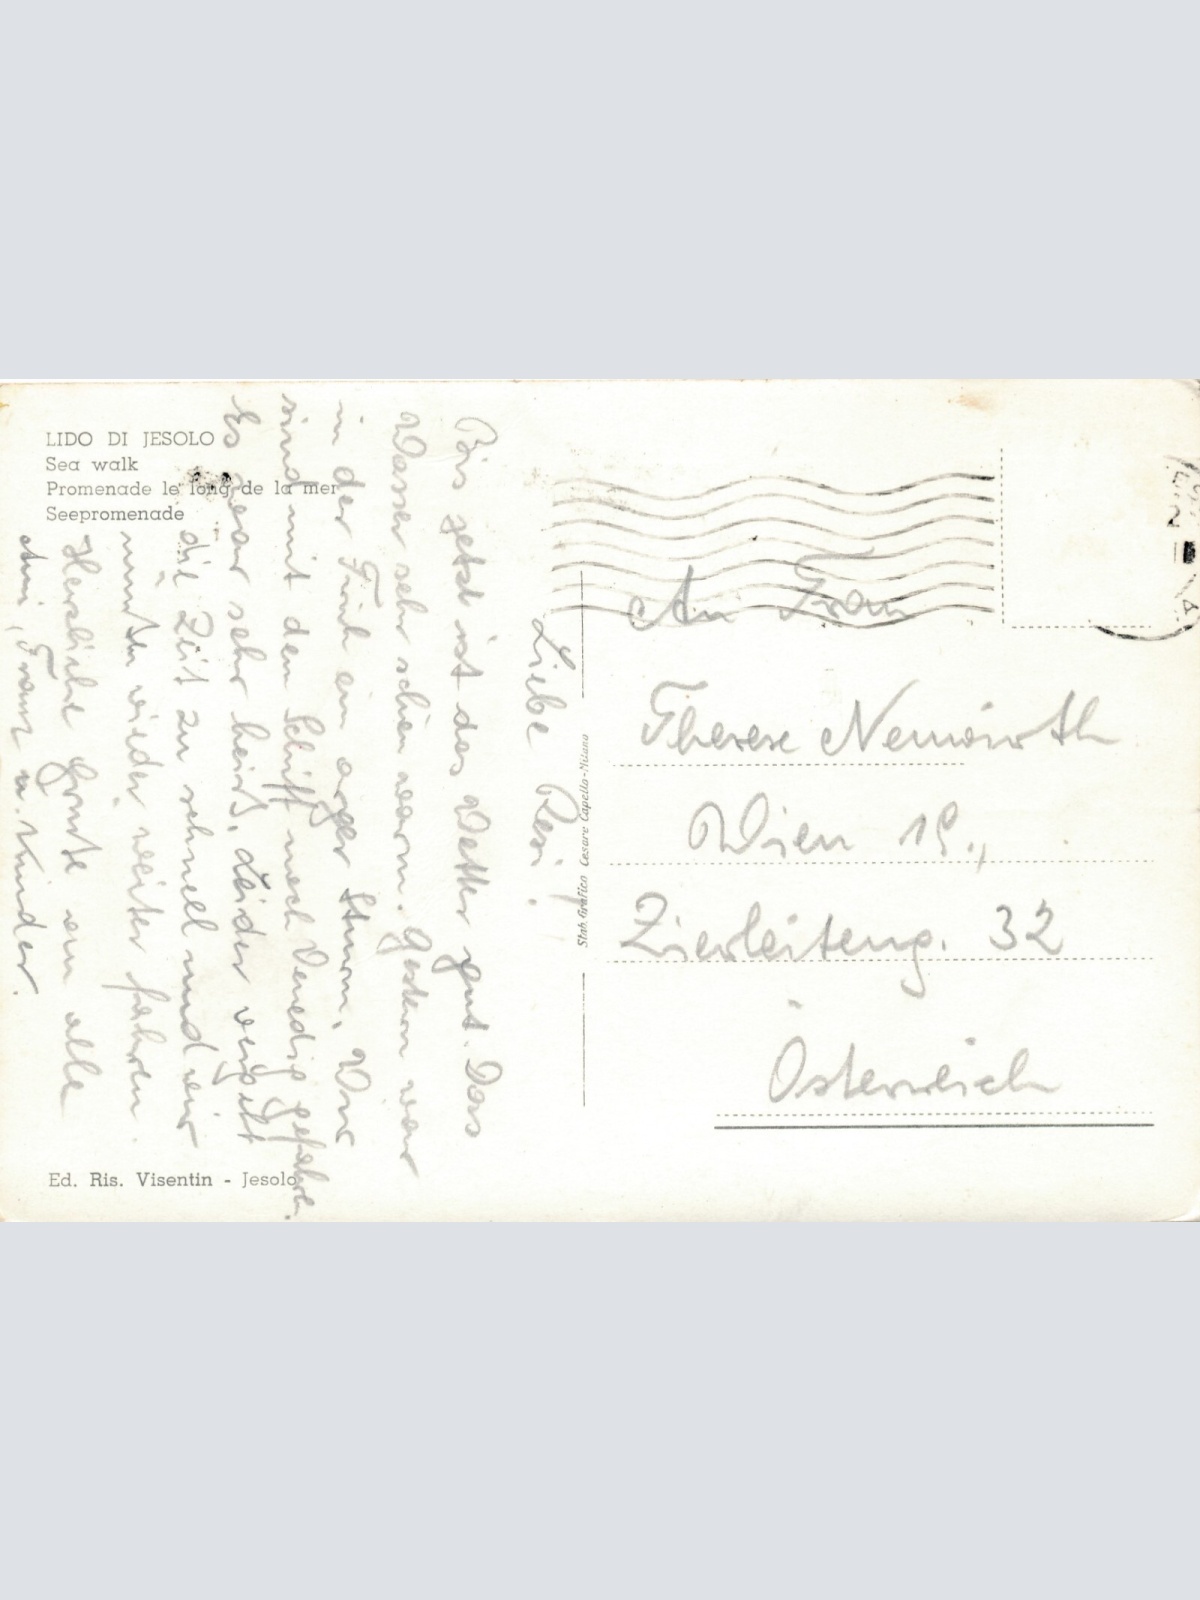 LIDO DI JESOLO
Sea walk
Promenade le long de la mer
Seepromenade
Liebe Resi!
Bis jetzt ist das Wetter gut. Das
Wasser sehr schön warm. Gestern war
in der Früh ein arger Sturm. Wir
sind mit den Schiff nach Venedig gefahren.
Es war sehr heiß. Leider vergeht
die Zeit zu schnell und wir
müßen wieder weiter fahren.
Herzliche Grüße an alle
Ami, Franz u. Kinder.
Ed. Ris. Visentin - Jesolo
Stab. Grafico Cesare Capello-Milano
An Frau
Therese Neuwirth
Wien 19.,
Zierleiteng. 32
Österreich